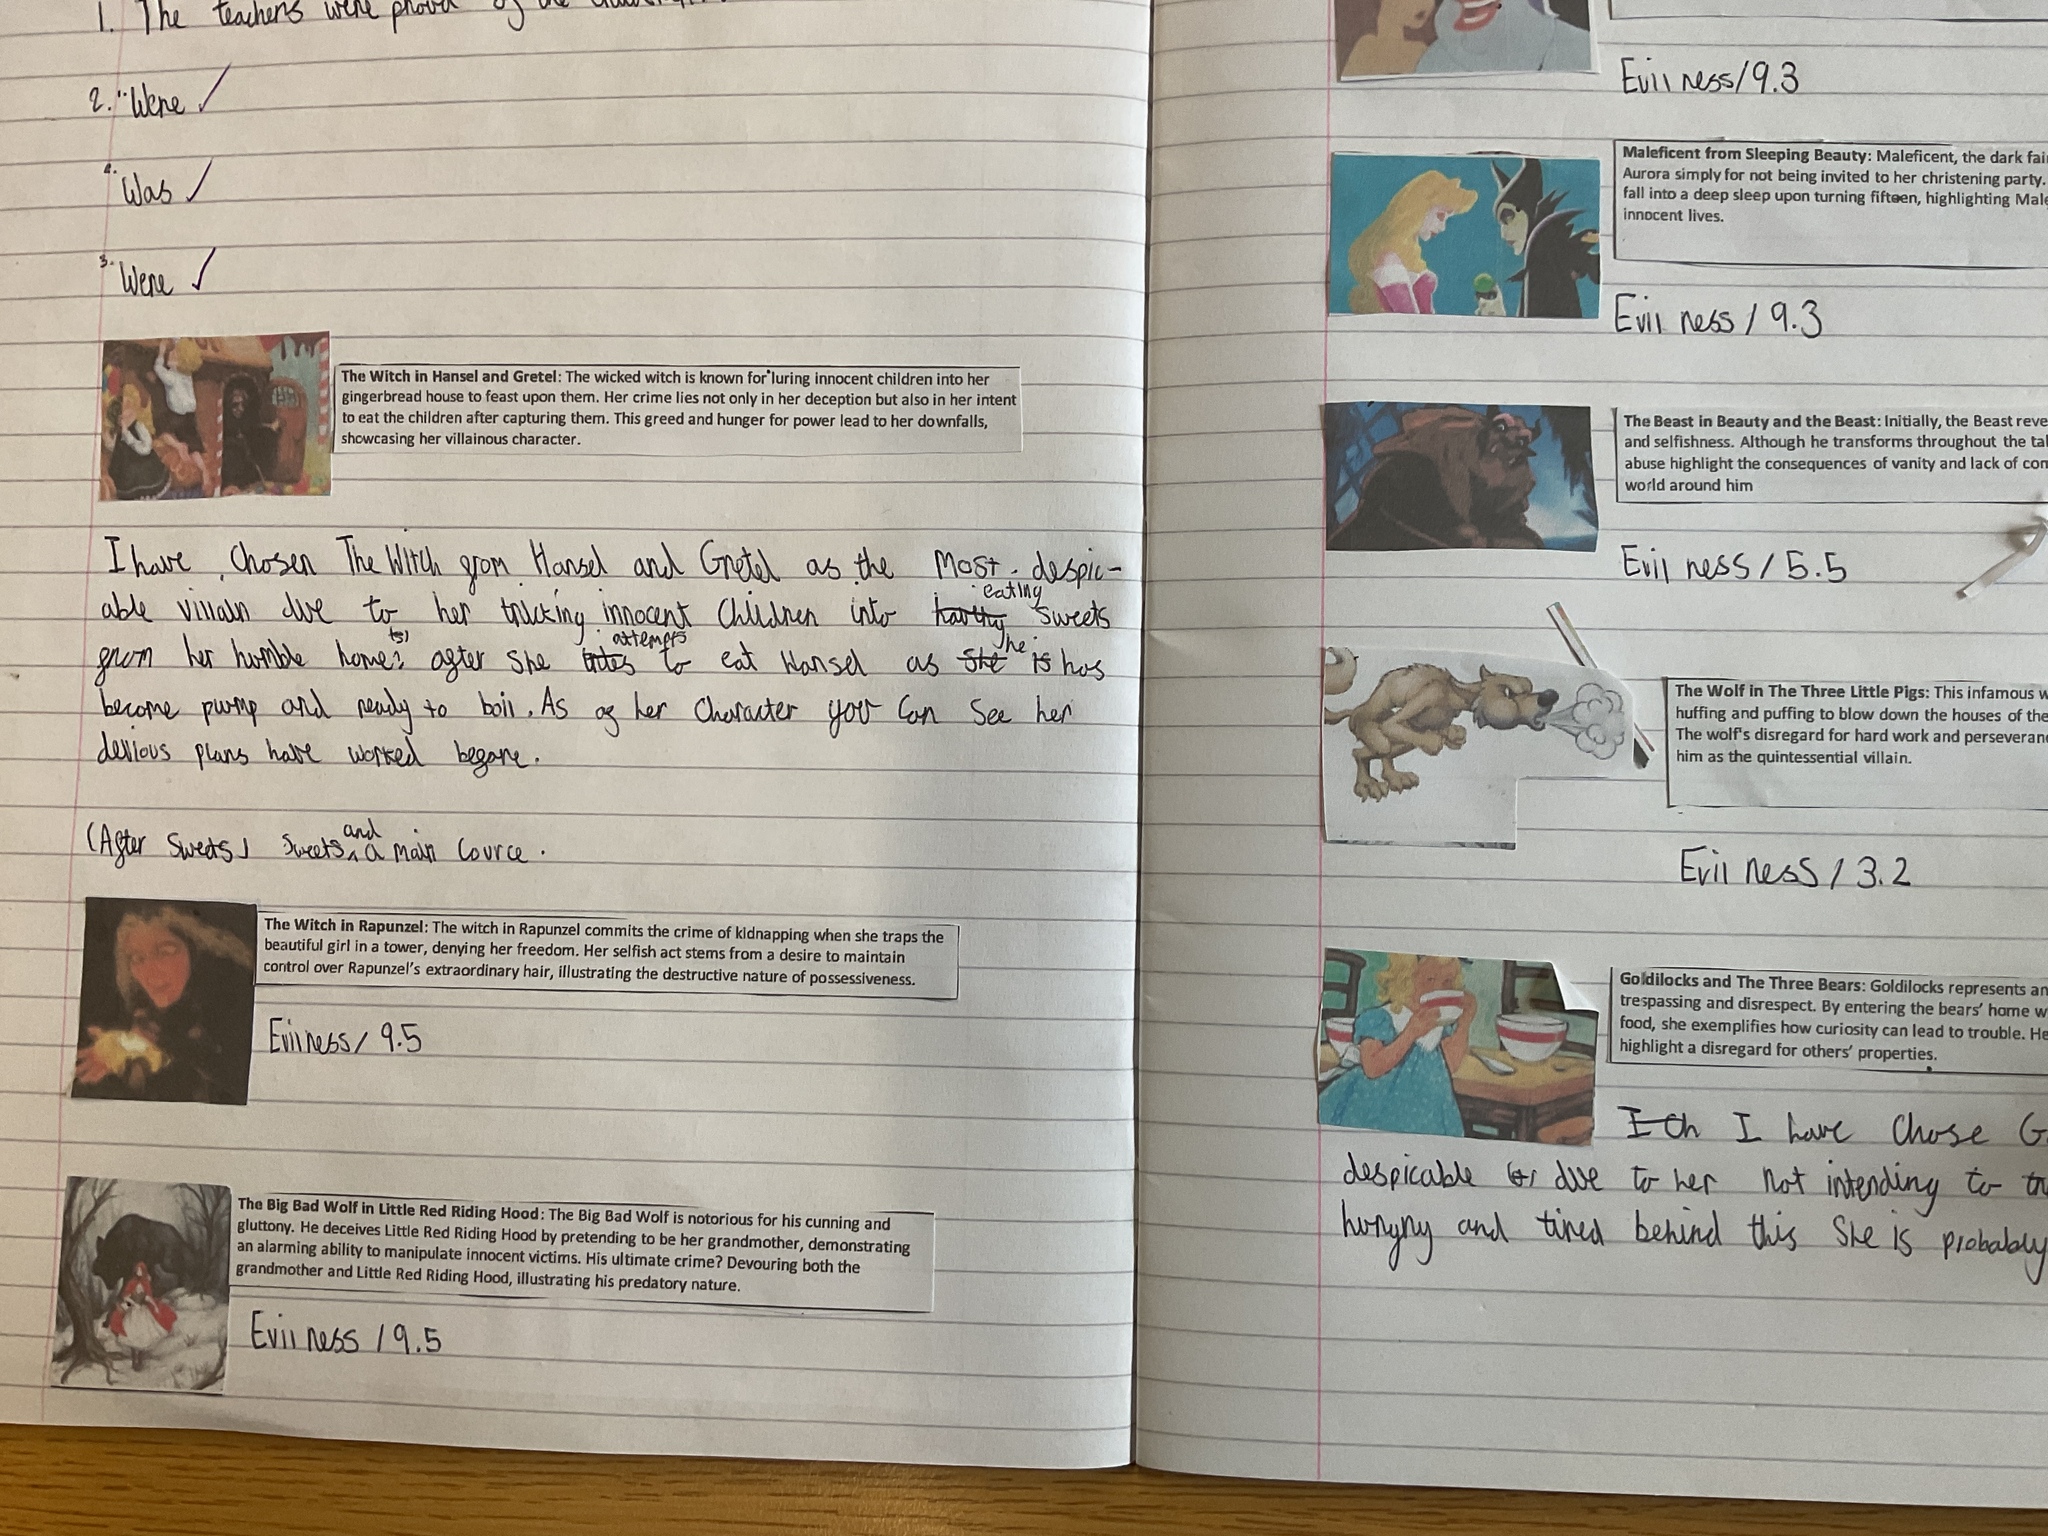 1. The teachers were proud of the
2. "Were ✓
2. Was ✓
3. Were ✓
The Witch in Hansel and Gretel: The wicked witch is known for luring innocent children into her
gingerbread house to feast upon them. Her crime lies not only in her deception but also in her intent
to eat the children after capturing them. This greed and hunger for power lead to her downfalls,
showcasing her villainous character.
I have Chosen The Witch from Hansel and Gretel as the Most despic-
able villain due to her tricking innocent Children into eating sweets
from her humble home: after she attempts to eat Hansel as he has
become pump and ready to boil. As of her Character you Can See her
devious plans have worked before.
(After Sweets) Sweets and a main Cource.
The Witch in Rapunzel: The witch in Rapunzel commits the crime of kidnapping when she traps the
beautiful girl in a tower, denying her freedom. Her selfish act stems from a desire to maintain
control over Rapunzel's extraordinary hair, illustrating the destructive nature of possessiveness.
Evilness / 9.5
The Big Bad Wolf in Little Red Riding Hood: The Big Bad Wolf is notorious for his cunning and
gluttony. He deceives Little Red Riding Hood by pretending to be her grandmother, demonstrating
an alarming ability to manipulate innocent victims. His ultimate crime? Devouring both the
grandmother and Little Red Riding Hood, illustrating his predatory nature.
Evil ness / 9.5
Evil ness / 9.3
Maleficent from Sleeping Beauty: Maleficent, the dark fai
Aurora simply for not being invited to her christening party.
fall into a deep sleep upon turning fifteen, highlighting Male
innocent lives.
Evil ness / 9.3
The Beast in Beauty and the Beast: Initially, the Beast reve
and selfishness. Although he transforms throughout the tal
abuse highlight the consequences of vanity and lack of com
world around him
Evil ness / 5.5
The Wolf in The Three Little Pigs: This infamous w
huffing and puffing to blow down the houses of the
The wolf's disregard for hard work and perseveran
him as the quintessential villain.
Evil ness / 3.2
Goldilocks and The Three Bears: Goldilocks represents an
trespassing and disrespect. By entering the bears' home w
food, she exemplifies how curiosity can lead to trouble. He
highlight a disregard for others' properties.
I Ch I have Chose G
despicable due to her not intending to
hungry and tired behind this She is probably